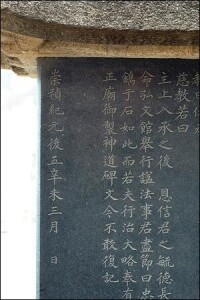 慈教若曰
主上入承之後　恩信君之毓德長
命弘文館舉行諡法事君盡節曰忠
鐫于石如此而若夫行治大略奉有
正廟御製神道碑文今不敢復記
崇禎紀元後五辛未三月　日